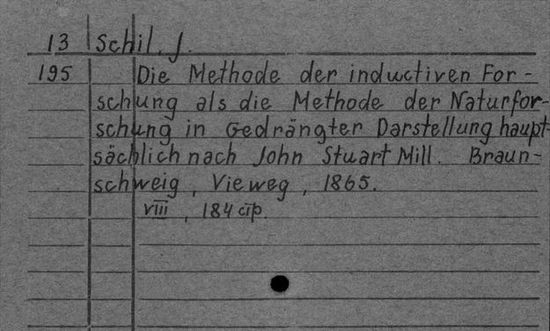 13 Schil. J.
195 Die Methode der inductiven For-
schung als die Methode der Naturfor-
schung in Gedrängter Darstellung haupt-
sächlich nach John Stuart Mill. Braun-
schweig, Vieweg, 1865.
VIII, 184 стр.